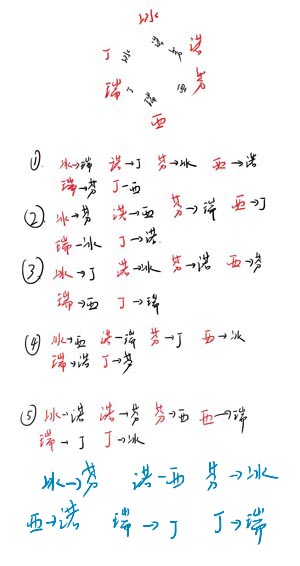 冰
丁 洪
瑞 芬
西
① 冰→瑞 洪→丁 芬→冰 西→洪
瑞→芬 丁-西
② 冰→芬 洪→西 芬→瑞 西→丁
瑞-冰 丁→洪
③ 冰→丁 洪→冰 芬→洪 西→芬
瑞→西 丁→瑞
④ 冰→西 洪-瑞 芬→丁 西→冰
瑞→洪 丁→芬
⑤ 冰→洪 洪→芬 芬→西 西→瑞
瑞→丁 丁→冰
冰→芬 洪-西 芬→冰
西→洪 瑞→丁 丁→瑞